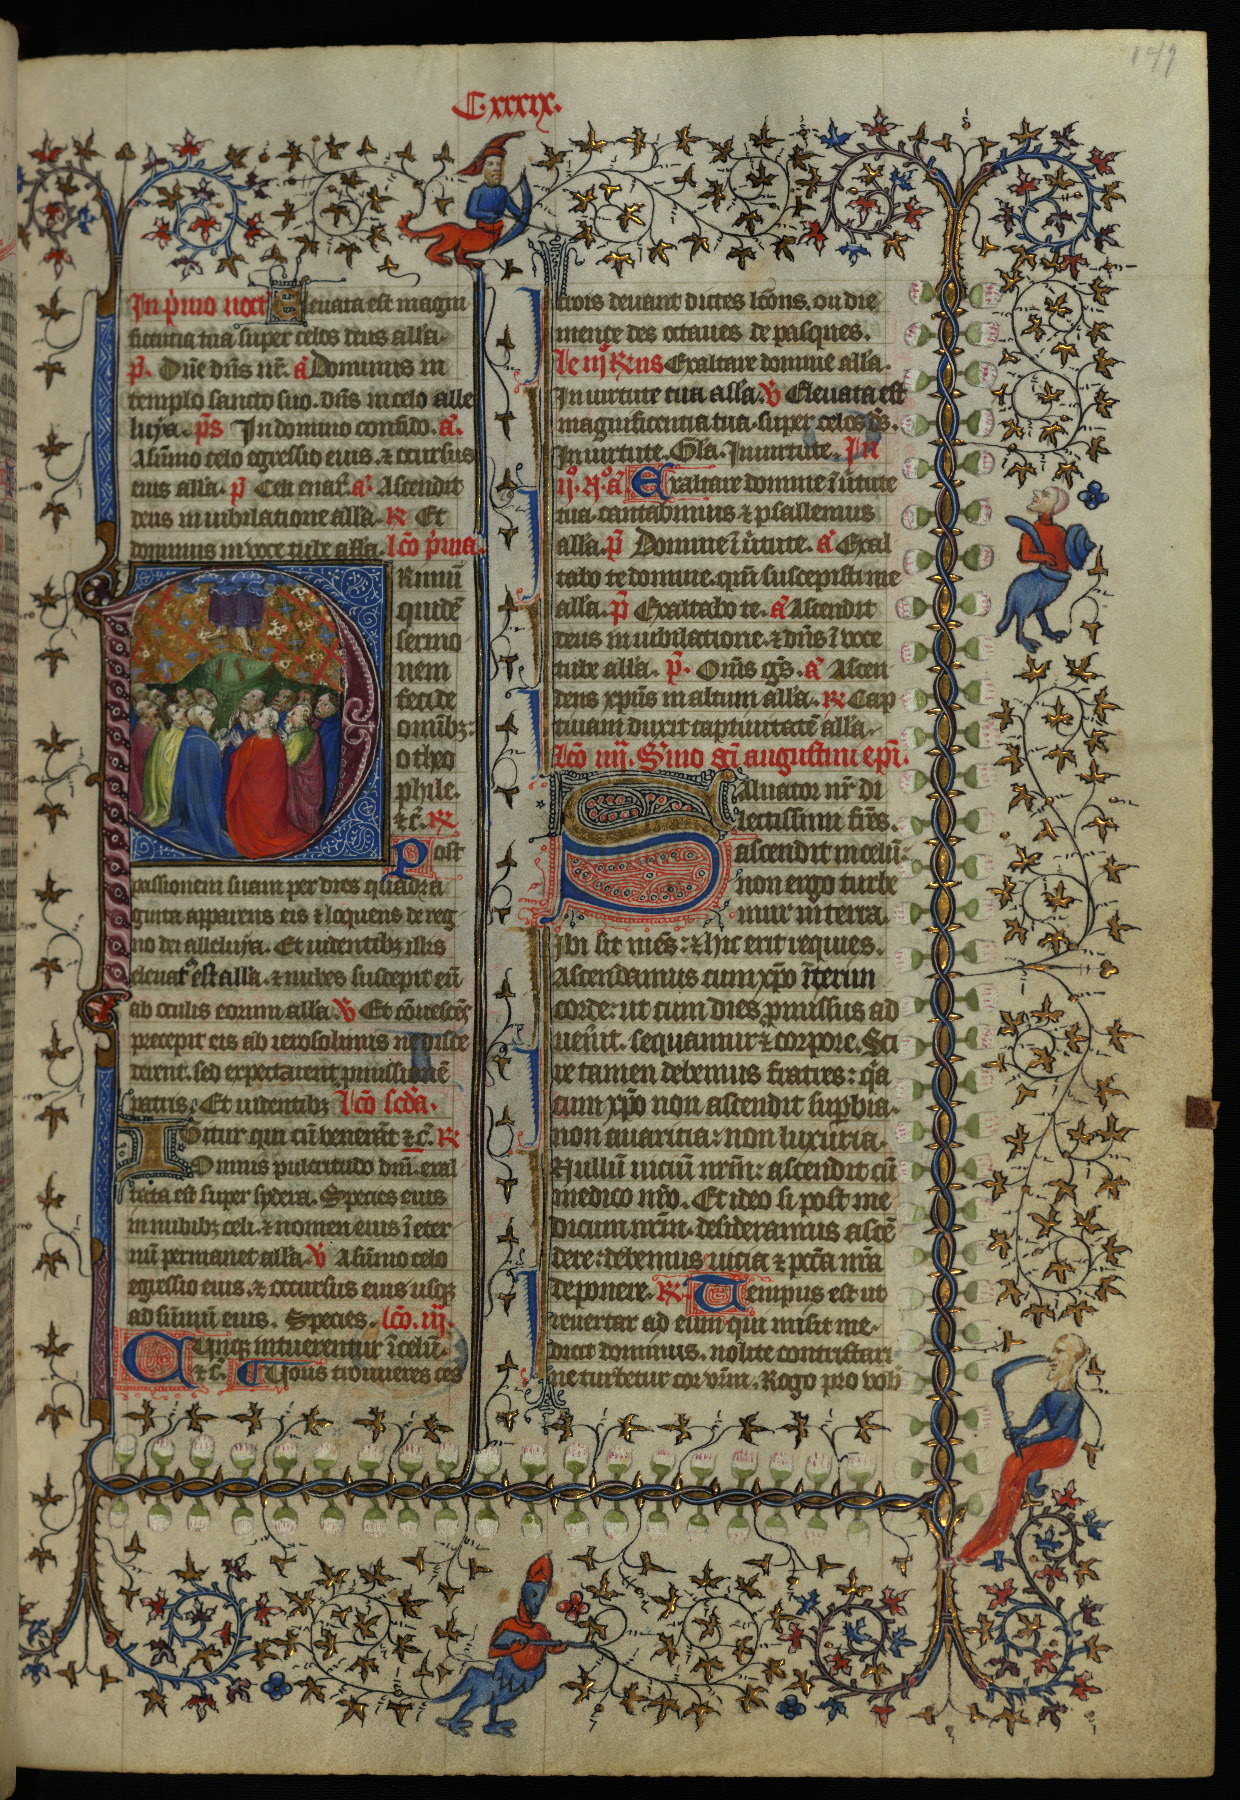 Cxxxix.
In p̄mo noct Eleuata est magni
ficentia tua super celos deus all'a.
p̄. Dn̄e dn̄s nr̄. a Dominus in
templo sancto suo. dn̄s in celo alle
luya. p̄s In domino confido. a.
A sūmo celo egressio eius. ⁊ occursus
eius all'a. p̄ Celi enar̄. a. Ascendit
deus in iubilatione all'a. ℟ Et
dominus in voce tube all'a. lc̄o p̄ma.
Rimū
quidē
sermo
nem
feci de
omnib;
o theo
phile.
⁊c̄. ℟
Post
passionem suam per dies quadra
ginta apparens eis ⁊ loquens de reg
no dei alleluya. Et uidentib; illis
eleuat᷒ est all'a. ⁊ nubes suscepit eū
ab oculis eorum all'a. ℣ Et cōuescēs
precepit eis ab ierosolimis ne disce
derent. sed expectarent p̄missionē
patris. Et uidentib; lc̄o scd̄a.
Igitur qui cū uenerāt ⁊c̄. ℟
Omnis pulcritudo dn̄i exal
tata est super sydera. Species eius
in nubib; celi. ⁊ nomen eius ī eter
nū permanet all'a. ℣ A sūmo celo
egressio eius. ⁊ occursus eius usq;
ad sūmū eius. Species. lc̄o. iij.
Cunq; intuerentur ī celū.
⁊c̄. Tous trouueres ces
trois deuant dictes lcōns. ou die
menge des octaues de pasques.
le iij R̄ns Exaltare domine all'a.
In uirtute tua all'a. ℣ Eleuata est
magnificentia tua. super celos d̄s.
In uirtute. Gl'a. In uirtute. In
ij. N°. a Exaltare domine ī ūtute
tua cantabimus ⁊ psallemus
all'a. p̄ Domine ī ūtute. a Exal
tabo te domine. qm̄ suscepisti me
all'a. p̄ Exaltabo te. a Ascendit
deus in iubilatione. ⁊ dn̄s ī voce
tube all'a. p̄. Om̄s gs̄. a Ascen
dens xpūs in altum all'a. ℟ Cap
tiuam duxit captiuitatē all'a.
lc̄o iiij. S'mo sc̄i augustini ep̄i.
Saluator nr̄ di
lectissimi fr̄es.
ascendit in celū:
non ergo turbe
mur in terra.
Ibi sit mēs: ⁊ hic erit requies.
Ascendamus cum xp̄o īterim
corde: ut cum dies p̄missus ad
uen̄it. sequamur ⁊ corpore. Sci
re tamen debemus fratres: q̄a
cum xp̄o non ascendit sup̄bia.
non auaricia: non luxuria.
Nullū uiciū nrm̄: ascendit cū
medico nr̄o. Et ideo si post me
dicum nrm̄. desideramus ascē
dere: debemus uicia ⁊ pcc̄a nr̄a
deponere. ℟. Tempus est ut
reuertar ad eum qui misit me.
dicit dominus. nolite contristari
ne turbetur cor vrm̄. Rogo pro vob̄